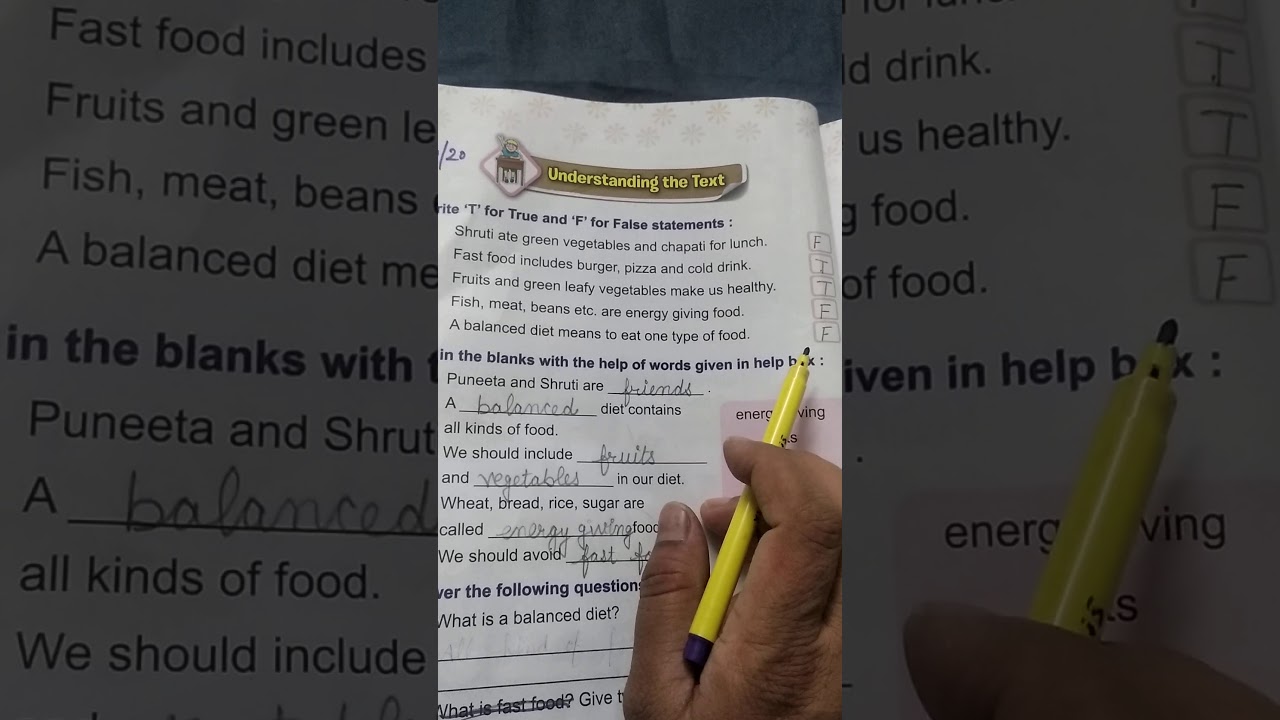 /20
Understanding the Text
rite 'T' for True and 'F' for False statements :
Shruti ate green vegetables and chapati for lunch. F
Fast food includes burger, pizza and cold drink. T
Fruits and green leafy vegetables make us healthy. T
Fish, meat, beans etc. are energy giving food. F
A balanced diet means to eat one type of food. F
in the blanks with the help of words given in help b x :
Puneeta and Shruti are friends .
A balanced diet contains
all kinds of food.
We should include fruits
and vegetables in our diet.
Wheat, bread, rice, sugar are
called energy giving food
We should avoid fast fo
energ ving
s
ver the following question
What is a balanced diet?
All kind of f
What is fast food? Give t